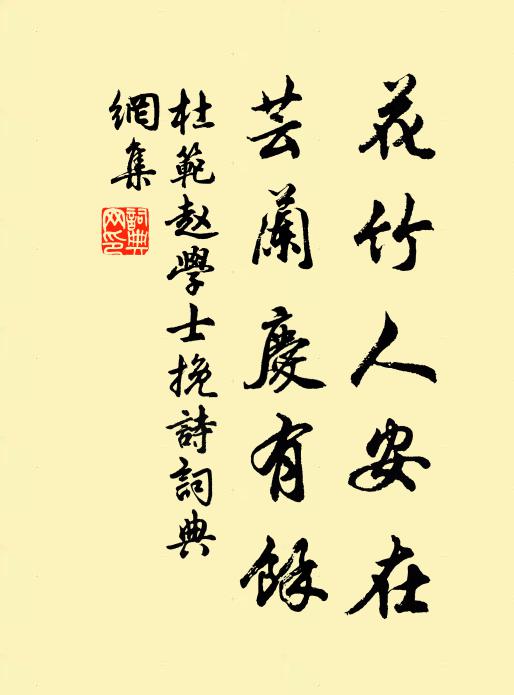 花竹人安在
芸蘭慶有餘
杜範趙學士挽詩詞典
網集
詞典網印